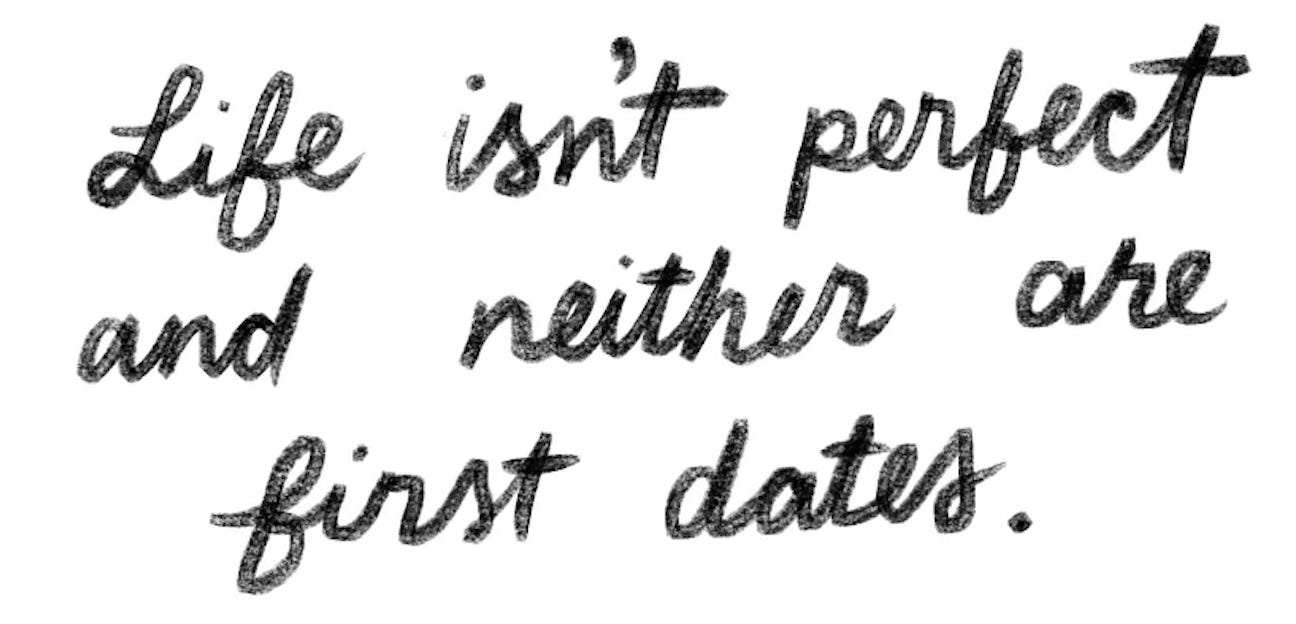 Life isn't perfect
and neither are
first dates.